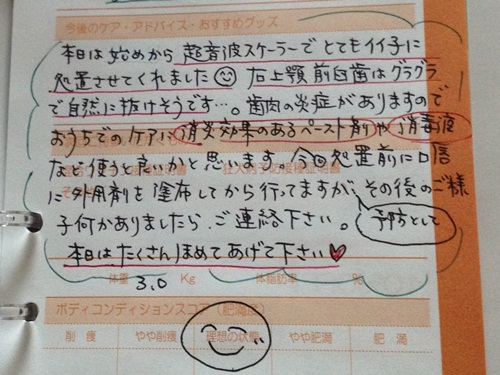 今後のケア・アドバイス・おすすめグッズ
本日は始めから超音波スケーラーでとてもイイ子に
処置させてくれました 右上顎前臼歯はグラグラ
で自然に抜けそうです…。歯肉の炎症がありますので
おうちでのケアに消炎効果のあるペースト剤や消毒液
など使うと良いかと思います。今回処置前に口唇
に外用剤を塗布してから行ってますが、その後のご様
子何かありましたら、ご連絡下さい。
予防として
本日はたくさんほめてあげて下さい♥
体重 3.0 Kg 体脂肪率 %
ボディコンディションスコア(肥満度)
削痩 やや削痩 理想の状態 やや肥満 肥満